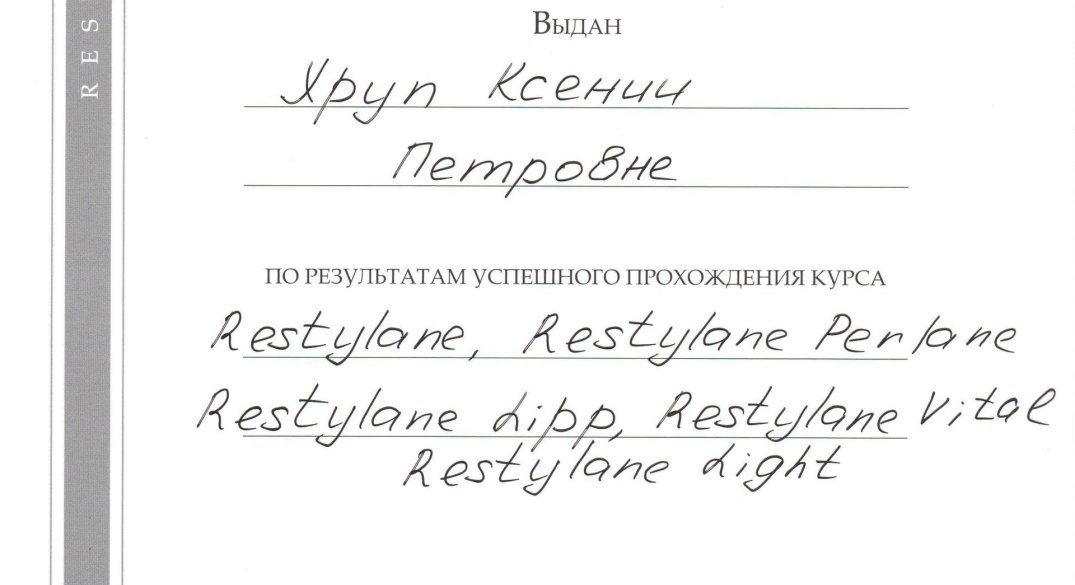 RES
Выдан
Хруп Ксении
Петровне
ПО РЕЗУЛЬТАТАМ УСПЕШНОГО ПРОХОЖДЕНИЯ КУРСА
Restylane, Restylane Perlane
Restylane Lipp, Restylane Vital
Restylane Light